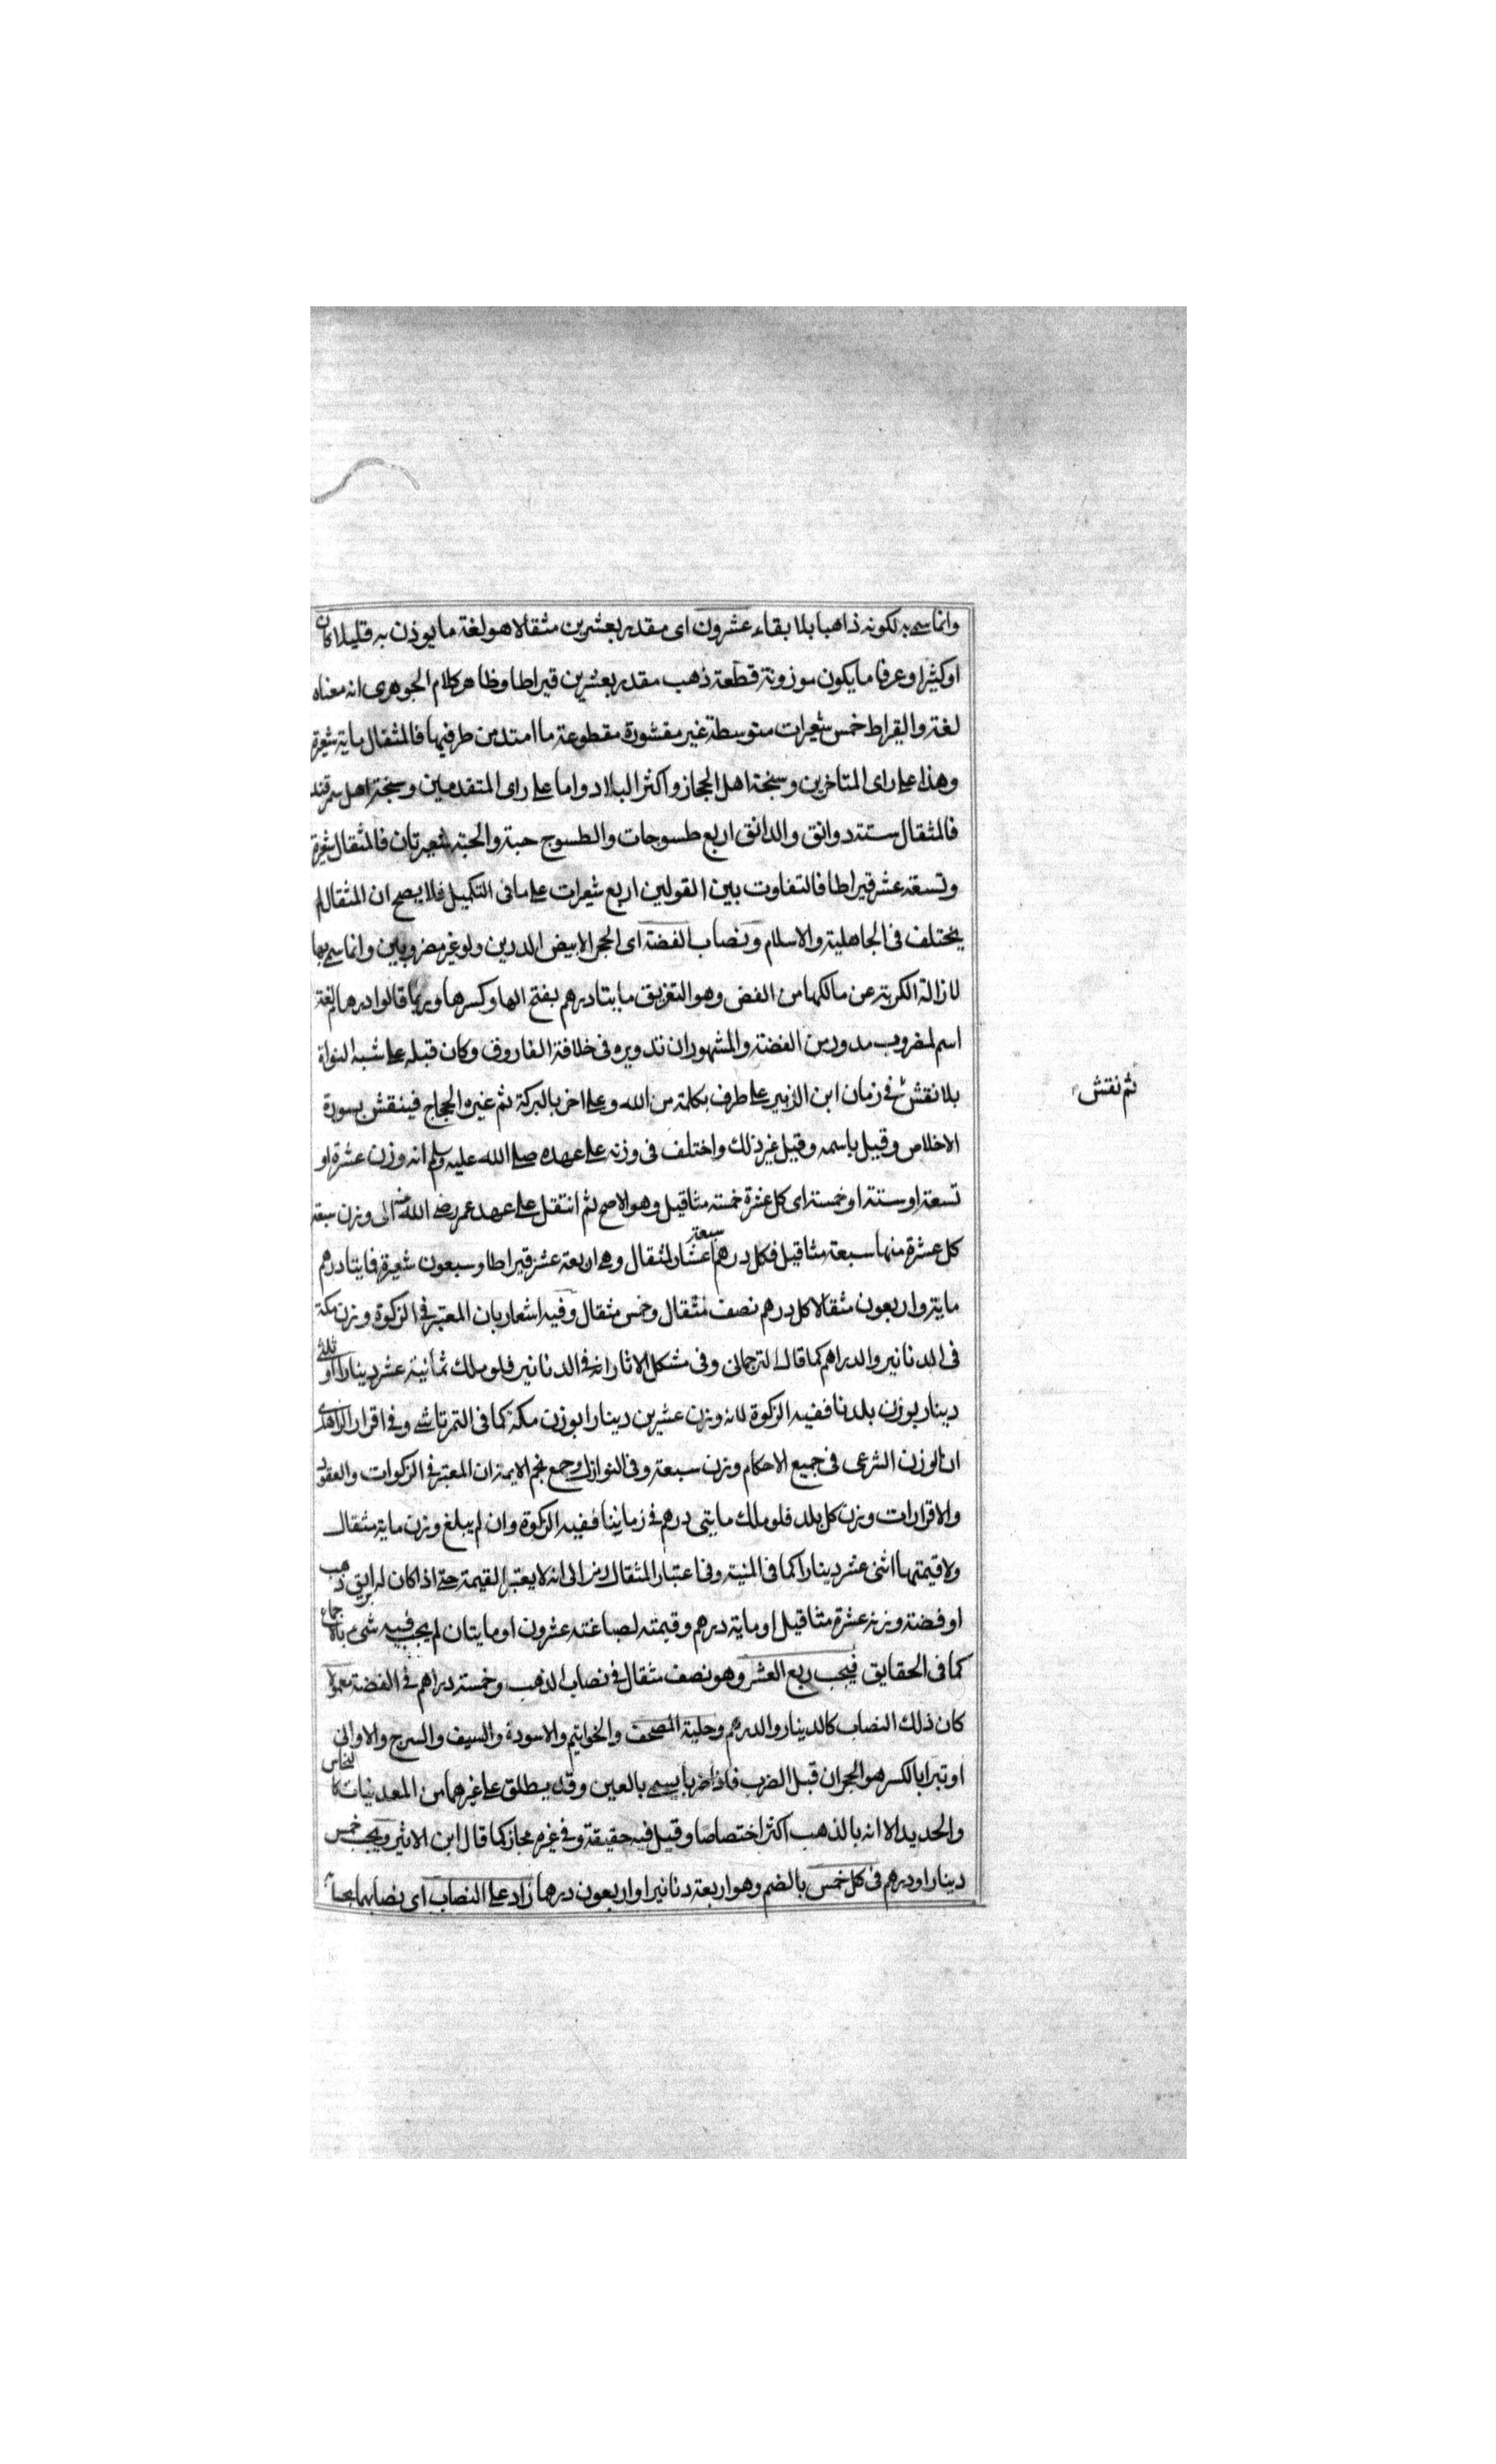 وانما سمى به لكونه ذاهبا بلا بقاء عشرون اى مقدر بعشرين مثقالا هو لغة ما يوزن به قليلا كان
او كثيرا وعرفا ما يكون موزونة قطعة ذهب مقدر بعشرين قيراطا وظاهر كلام الجوهرى انه معناه
لغة والقيراط خمس شعيرات متوسطة غير مقشورة مقطوعة ما امتد من طرفيها فالمثقال ماية شعيرة
وهذا على راى المتاخرين وسنجة اهل الحجاز واكثر البلاد واما على راى المتقدمين وسنجة اهل سمرقند
فالمثقال ستة دوانق والدانق اربع طسوجات والطسوج حبة والحبة شعيرتان فالمثقال شعيرة
وتسعة عشر قيراطا فالتفاوت بين القولين اربع شعيرات على ما فى التكميل فلا يصح ان المثقال لم
يختلف فى الجاهلية والاسلام ونصاب الفضة اى الحجر الابيض الدرين ولو غير مضروبين وانما سمى بها
لازالة الكربة عن مالكها من الفض وهو التفريق مايتا درهم بفتح الها وكسرها وربما قالوا درهام لغة
اسم لمضروب مدور من الفضة والمشهور ان تدويره فى خلافة الفاروق وكان قبله على شبه النواة
بلا نقش فى زمان ابن الزبير على طرف بكلمة من الله وعلى اخر بالبركة ثم غيره الحجاج فينقش بسورة
ثم نقش
الاخلاص وقيل باسمه وقيل غير ذلك واختلف فى وزنه على عهده صلى الله عليه وسلم انه وزن عشرة او
تسعة او ستة او خمسة اى كل عشرة خمسة مثاقيل وهو الاصح ثم انتقل على عهد عمر رضى الله عنه الى وزن سبعة
كل عشرة منها سبعة مثاقيل فكل درهم سبعة اعشار المثقال وهى اربعة عشر قيراطا وسبعون شعيرة فمايتا درهم
ماية واربعون مثقالا كل درهم نصف مثقال وخمس مثقال وفيه اشعار بان المعتبر فى الزكوة وزن مكة
فى الدنانير والدراهم كما قال الترجمانى وفى مشكل الاثار انه فى الدنانير فلو ملك ثمانية عشر دينارا او ثلثى
دينار بوزن بلدنا ففيه الزكوة لانه وزن عشرين دينارا بوزن مكة كما فى التمرتاشى وفى اقرار الزاهدى
ان الوزن الشرعى فى جميع الاحكام وزن سبعة وفى النوازل وجمع نجم الايمة ان المعتبر فى الزكوات والعقود
والاقرارات وزن كل بلد فلو ملك مايتى درهم فى زماننا ففيه الزكوة وان لم يبلغ وزن ماية مثقال
ولا قيمتها اثنى عشر دينارا كما فى المنية وفى اعتبار المثقال رمز الى انه لا يعتبر القيمة حتى اذا كان له ابريق ذهب
او فضة وزنه عشرة مثاقيل او ماية درهم وقيمته لصياغته عشرون او مايتان لم يجب فيه شىء بالاجماع
كما فى الحقايق فيجب ربع العشر وهو نصف مثقال فى نصاب الذهب وخمسة دراهم فى الفضة معمولا
كان ذلك النصاب كالدينار والدرهم وحلية المصحف والخواتيم والاسورة والسيف والسرج والاوانى
او تبرا بالكسر هو الحجران قبل الضرب فاذا ضربا يسمى بالعين وقد يطلق على غيرهما من المعدنيات كالنحاس
والحديد الا انه بالذهب اكثر اختصاصا وقيل فيه حقيقة وفى غيره مجاز كما قال ابن الاثير ويجب خمس
دينار او درهم فى كل خمس بالضم وهو اربعة دنانير او اربعون درهما زاد على النصاب اى نصابهما